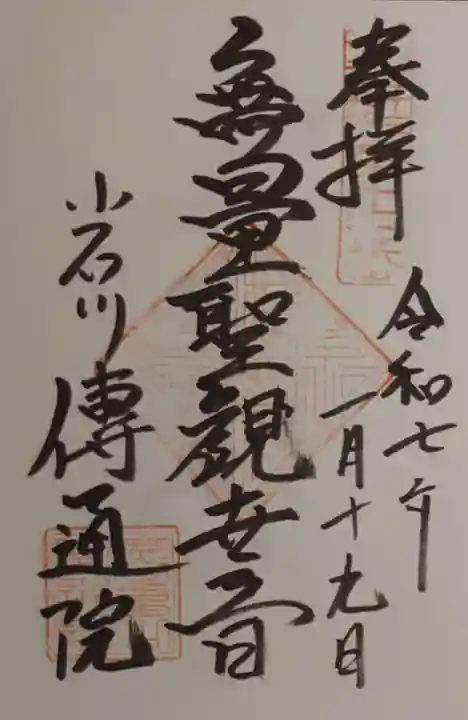 奉拝
令和七年
一月十九日
無量聖観世音
小石川
傳通院